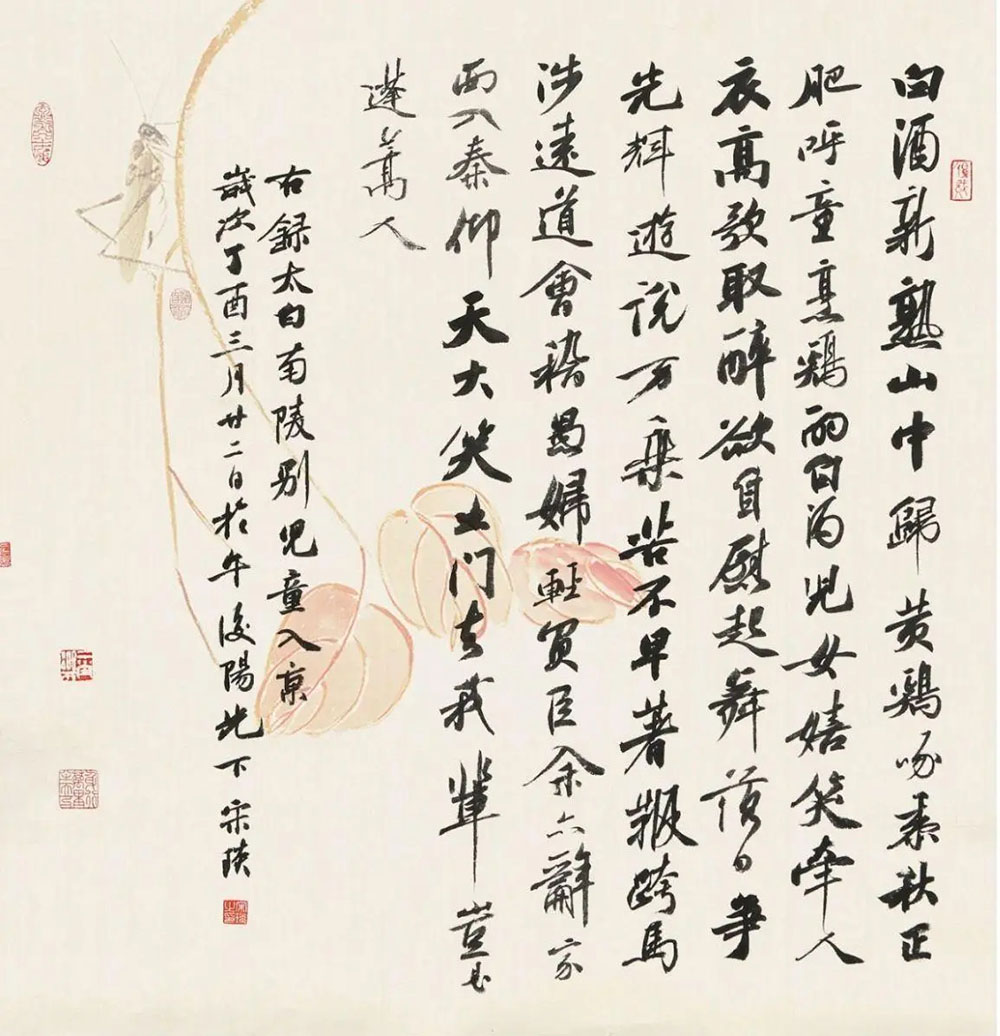 白酒新熟山中歸黄鷄啄黍秋正
肥呼童烹鷄酌白酒兒女嬉笑牽人
衣高歌取醉欲自慰起舞落日争
光輝遊説万乘苦不早著鞭跨馬
涉遠道會稽愚婦輕買臣余亦辭家
西入秦仰天大笑出門去我輩豈是
蓬蒿人
右録太白南陵别兒童入京
歲次丁酉三月廿二日於午後陽光下 宋